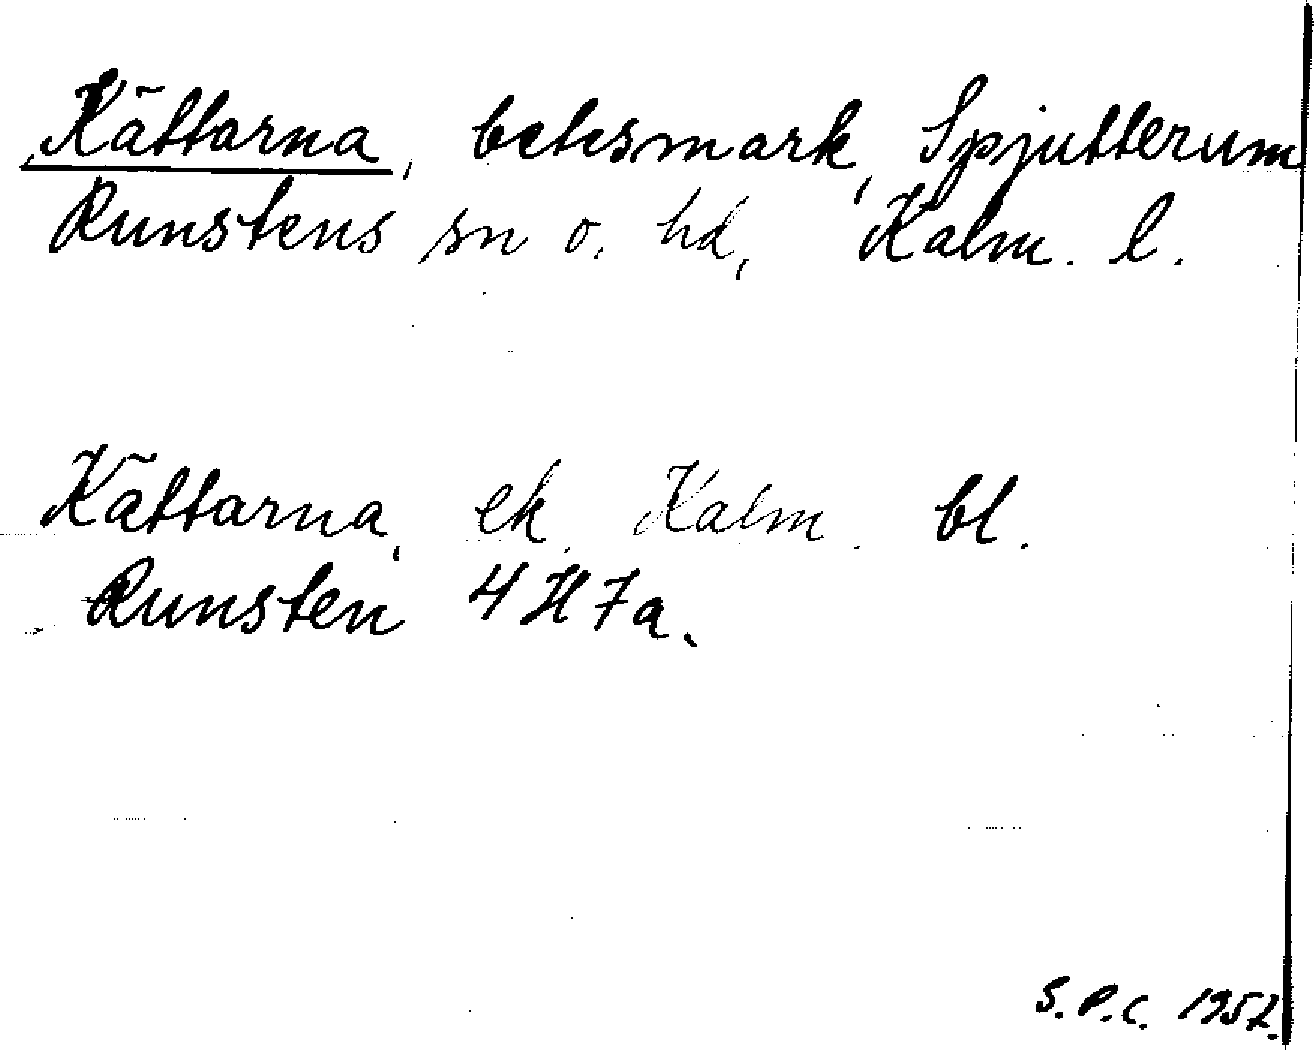 Kättarna, betesmark, Spjutterum
Runstens sn o. hd, Kalm. l.
Kättarna, ek. Kalm. bl.
Runsten 4 H 7a.
S.P.C. 1952.